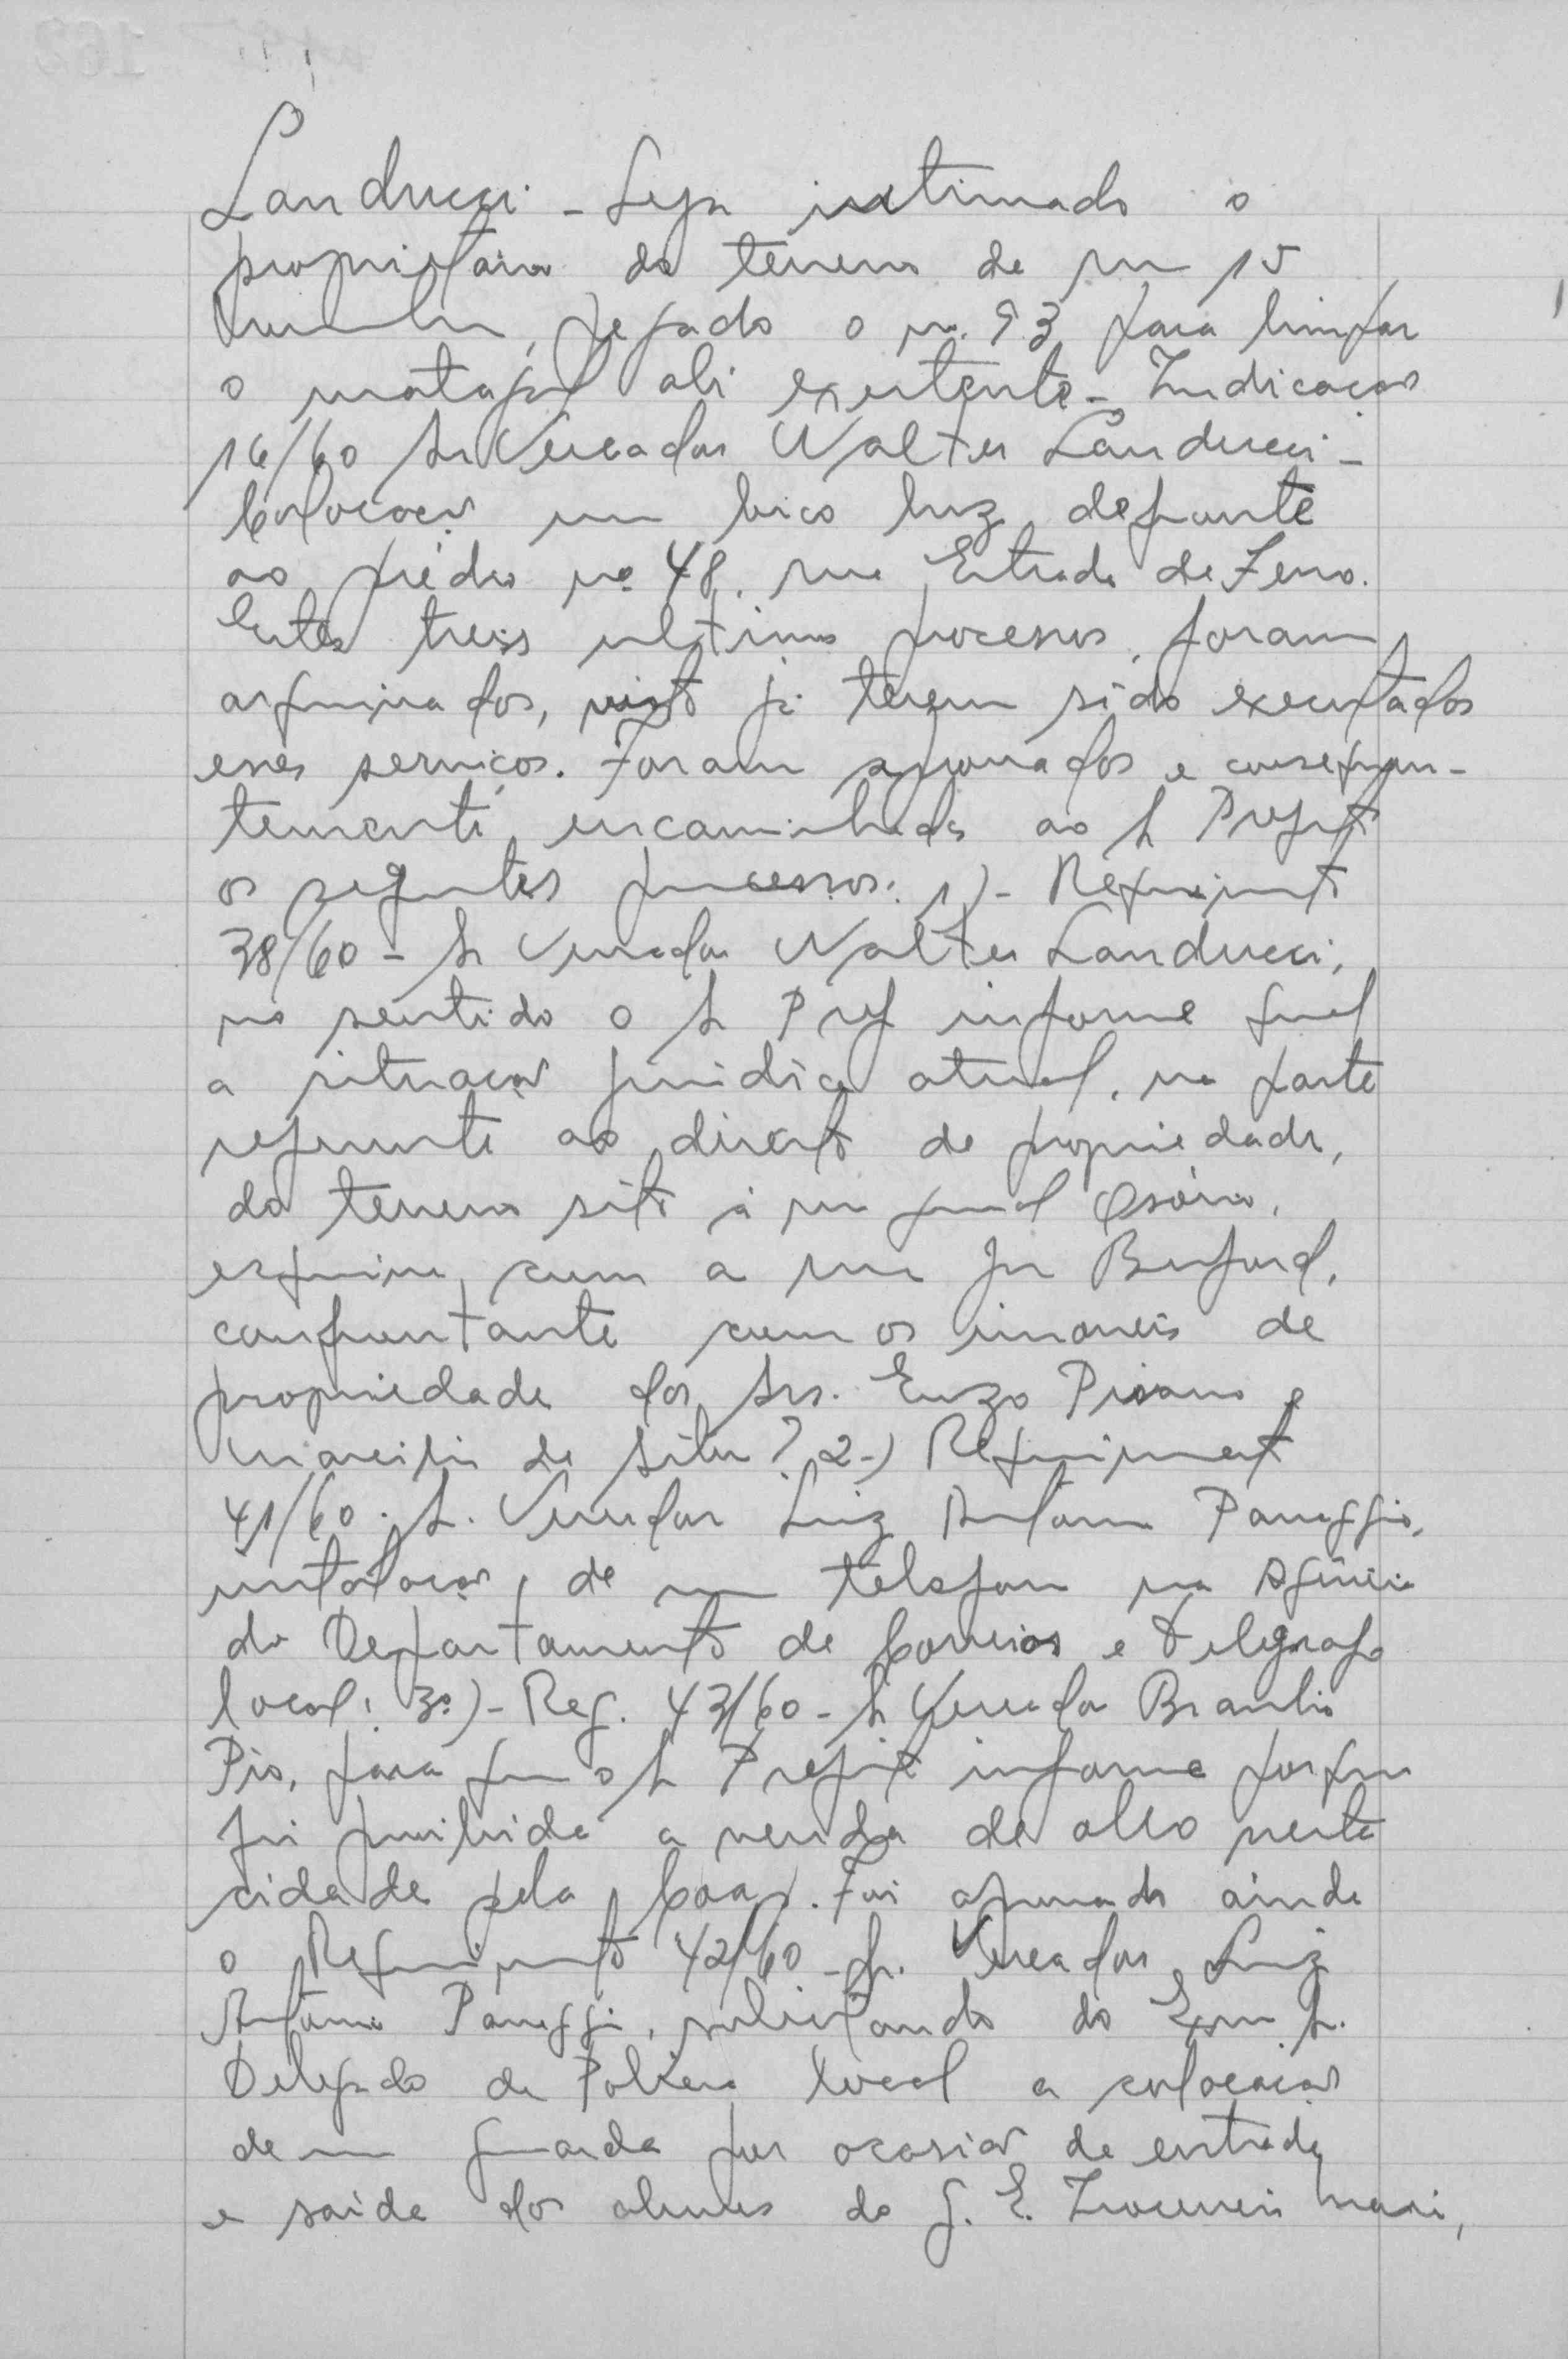 Landucci - Seja intimado o
proprietario do terreno da rua 15
Novembro, pegado o nº. 93 para limpar
o matagal ali existente - Indicação
16/60 Sr Vereador Walter Landucci -
Colocação um bico luz defronte
ao prédio nº 48, rua Estrada de Ferro.
Estes treis ultimos processos, foram
arquivados, visto já terem sido executados
esses serviços. Foram aprovados e consequen-
temente, encaminhados ao Sr Prefeito
os seguintes processos: 1)- Requerimento
38/60 - Sr Vereador Walter Landucci,
no sentido o Sr Pref informe qual
a situação juridica atual, na parte
referente ao direito de propriedade,
do terreno sito á rua Osório,
esquina com a rua
confrontante com os imoveis de
propriedade dos Srs. Enzo Pisano e
da Silva? 2-) Requerimento
41/60. Sr. Vereador Luiz Antonio
instalação, de um telefone na Agência
do Departamento de Correios e Telegrafo
local; 3º)- Req. 43/60 - Sr Vereador Braulio
Pio, para que o Sr Prefeito informe porque
foi proibida a venda de alho nesta
cidade pela Coap. Foi aprovado ainda
o Requerimento 42/60 - Sr. Vereador Luiz
Antonio, solicitando do Exmo Sr.
Delegado de Policia local a colocação
de um guarda por ocasião da entrada
e saida dos alunos do G. E.